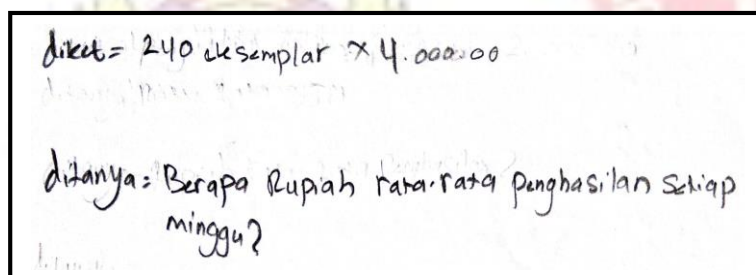 diket = 240 eksemplar × 4.000.00
ditanya = Berapa Rupiah rata-rata penghasilan setiap
minggu?